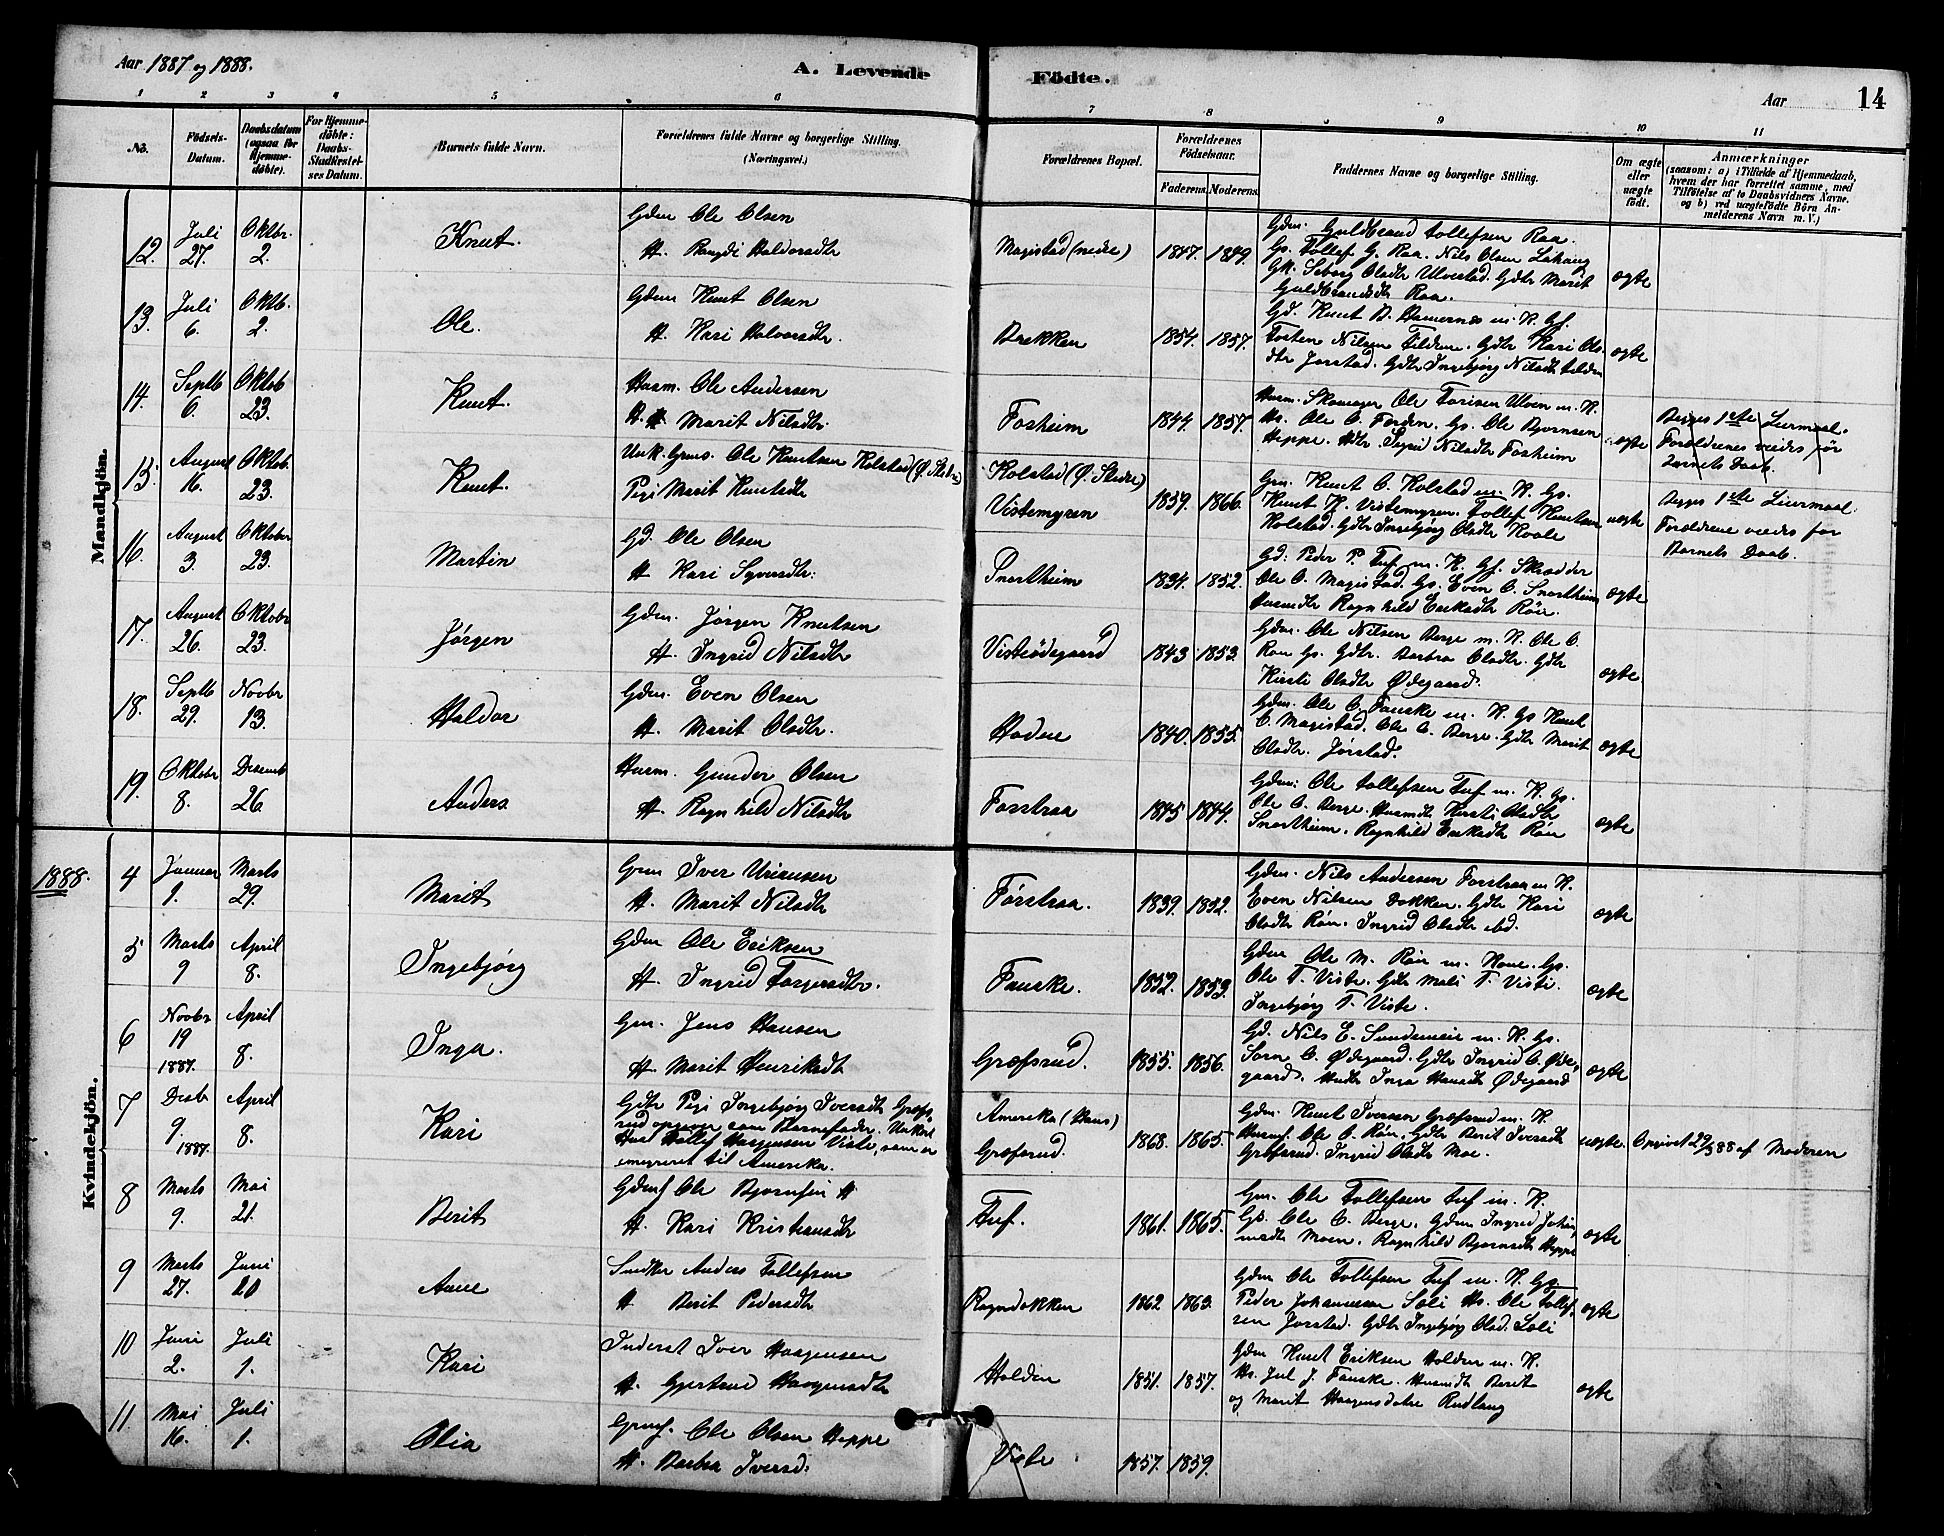 Aar 1887 og 1888.
A. Levende Födte.
Aar
14
1 2 3 4 5 6 7 8 9 10 11
No.
Födsels-Datum.
Daabsdatum (ogsaa for Hjemme-döbte).
For Hjemme-döbte: Daabs-Stadfæstelses Datum.
Barnets fulde Navn.
Forældrenes fulde Navne og borgerlige Stilling. (Næringsvei.)
Forældrenes Bopæl.
Forældrenes Födselsaar.
Faderens. Moderens.
Faddernes Navne og borgerlige Stilling.
Om ægte eller uægte födt.
Anmærkninger
(saasom: a) i Tilfælde af Hjemmedaab, hvem der har forrettet samme, med Tilföielse af to Daabsvidners Navne, og b) ved uægtefödte Börn Anmelderens Navn m. V.)
Mandkjön.
12. Juli 27. Oktbr. 2. Knut. Gdm Ole Olsen
H. Rangdi Haldorsdtr
Magistad (nedre) 1847. 1849.
Gdm. Guldbrand Tollefsen Raa.
Gs. Tollef G. Raa. Nils Olsen
Gk. Olsdtr Ulvestad. Gdtr Marit
Guldbrandsdtr Raa.
ægte
13. Juli 6. Oktb. 2. Ole. Gdm Knut Olsen
H. Kari Halvorsdtr.
Brekken 1854. 1857.
Gd. Knut B. m. K. Gf.
Tosten Nilsen Tildem. Gdtr Kari Ols-
dtr Jorstad. Gdtr Ingebjørg Nilsdtr
ægte
14. Septb 6. Oktob 23. Knut. Husm. Ole Andersen
H. H. Marit Nilsdtr.
Fosheim 1844. 1857.
Husm. Skomager Ole Torisen Ulven m. K.
Hs. Ole O. Gs. Ole Bjørnsen
Heppe. Hdtr Sigrid Nilsdtr Fosheim
ægte
Begges 1ste Leiermaal.
Forældrenes viedes før
Barnets Daab.
15. August 16. Oktob. 23. Knut. Unk. Gms. Ole Knutsen Kolstad (Ø. Slidre)
Pigi Marit Knutsdtr
Kolstad (Ø. Slidre)
Vistemyren 1859. 1866.
Gm. Knut O. Kolstad m. K. Gs.
Knut K. Vistemyren. Tollef Knutsen
Kolstad. Gdtr Ingebjørg Olsdtr Hovle
uægte
Begges 1ste Leiermaal.
Forældrene viedes før
Barnets Daab.
16. August 3. Oktober 23. Martin Gd. Ole Olsen
H. Kari Syversdtr.
Snortheim 1834. 1852.
Gd. Peder P. Tuf m. K. Gf. Skrædder
Ole O. Magistad. Gs. Even O. Snortheim
Husmdtr Ragnhild Eriksdtr Røn.
ægte
17. August 26. Oktobr 23. Jørgen Gdm. Jørgen Knutsen
H. Ingrid Nilsdtr
Visteødegaard 1843 1853.
Gdm. Ole Nilsen Berge m. K. Ole O.
Røn Gs. Gdtr. Barbra Olsdtr. Gdtr
Kirsti Olsdtr Ødegaard.
ægte
18. Septb 29. Novbr 13. Haldor Gdm. Even Olsen
H. Marit Olsdtr.
1840. 1855.
Gdm. Ole O. Fauske m. K. Gs Knut
O. Magistad. Ole O. Berge. Gdtr Marit
Olsdtr. Jørstad.
ægte
19. Oktobr 8. Desemb 26. Anders Husm. Gunder Olsen
H. Ragnhild Nilsdtr
Forstraa 1845 1844.
Gdm. Ole Tollefsen Tuf m. K. Gs.
Ole O. Berge. Husmdtr Kirsti Olsdtr
Snortheim. Ragnhild Eriksdtr Røn
ægte
1888.
Kvindekjön.
4 Januar 1. Marts 29. Marit Gm Iver
H. Marit Nilsdtr
Førstraa. 1839. 1852.
Gdm. Nils Andersen Forstraa m K.
Even Nilsen Dokken. Gdtr Kari
Olsdtr Røn. Ingrid Olsdtr ibd.
ægte
5 Marts 9 April 8. Ingebjørg Gdm Ole Eriksen
H. Ingrid Torgersdtr.
Fauske. 1852. 1853.
Gdm Ole M. Røn m. Kone. Gs.
Ole T. Viste. Gdtr Mali T. Viste.
Ingebjørg T. Viste.
ægte
6 Novbr 19 1887. April 8. Inga. Gm. Jens Hansen
H. Marit Henriksdtr
Græfsrud. 1855. 1856.
Gd. Nils E. Sundemeie m. K. Gs.
O. Ødegaard. Gdtr Ingrid O. Øde-
gaard. Hmdtr Inga Hansdtr Ødegaard
ægte
7 Desbr 9. 1887. April 8. Kari Gdtr Pigi Ingebjørg Iversdtr Græfs-
rud opgiver som Barnefader. Unkarl
Tollef Haagensen Viste, som er
emigreret til Amerika.
Amerika (Hans)
Græfsrud. 1863. 1865.
Gdm. Knut Iversen Græfsrud m. K.
Husmf. Ole O. Røn. Gdtr Berit Iversdtr
Græfsrud. Ingrid Olsdtr Moe.
uægte
Opgivet 29/3 88 af Moderen
8 Marts 9. Mai 21. Berit Gdmf Ole H
H. Kari Kristiansdtr
Tuf. 1861. 1865.
Gm. Ole Tollefsen Tuf m. K.
Gs. Ole O. Berge. Gdm Ingrid Johan-
nesdtr Moen. Ragnhild Bjørnsdtr Heppe
ægte
9 Marts 27. Juni 20 Anne Snedker Anders Tollefsen
H Berit Pedersdtr
Rogndokken 1862 1863.
Gdm Ole Tollefsen Tuf m. K. Gs
Peder Johannessen Soli Hs. Ole Tollef-
sen Jorstad. Gdtr Ingebjørg Olsd. Soli
ægte
10 Juni 2. Juli 1. Kari Inderst Iver Haagensen
H. Gjertrud Haagensdtr
Holden 1851. 1857.
Gdm Knut Eriksen Holden m. K.
Hs. Jul J. Fauske. Husmdtr Berit
og Marit Haagensdotre Rudlang
ægte
11 Mai 16. Juli 1. Olia Gmf. Ole Olsen Heppe
H. Barbra Iversd.
Viste 1857. 1859.